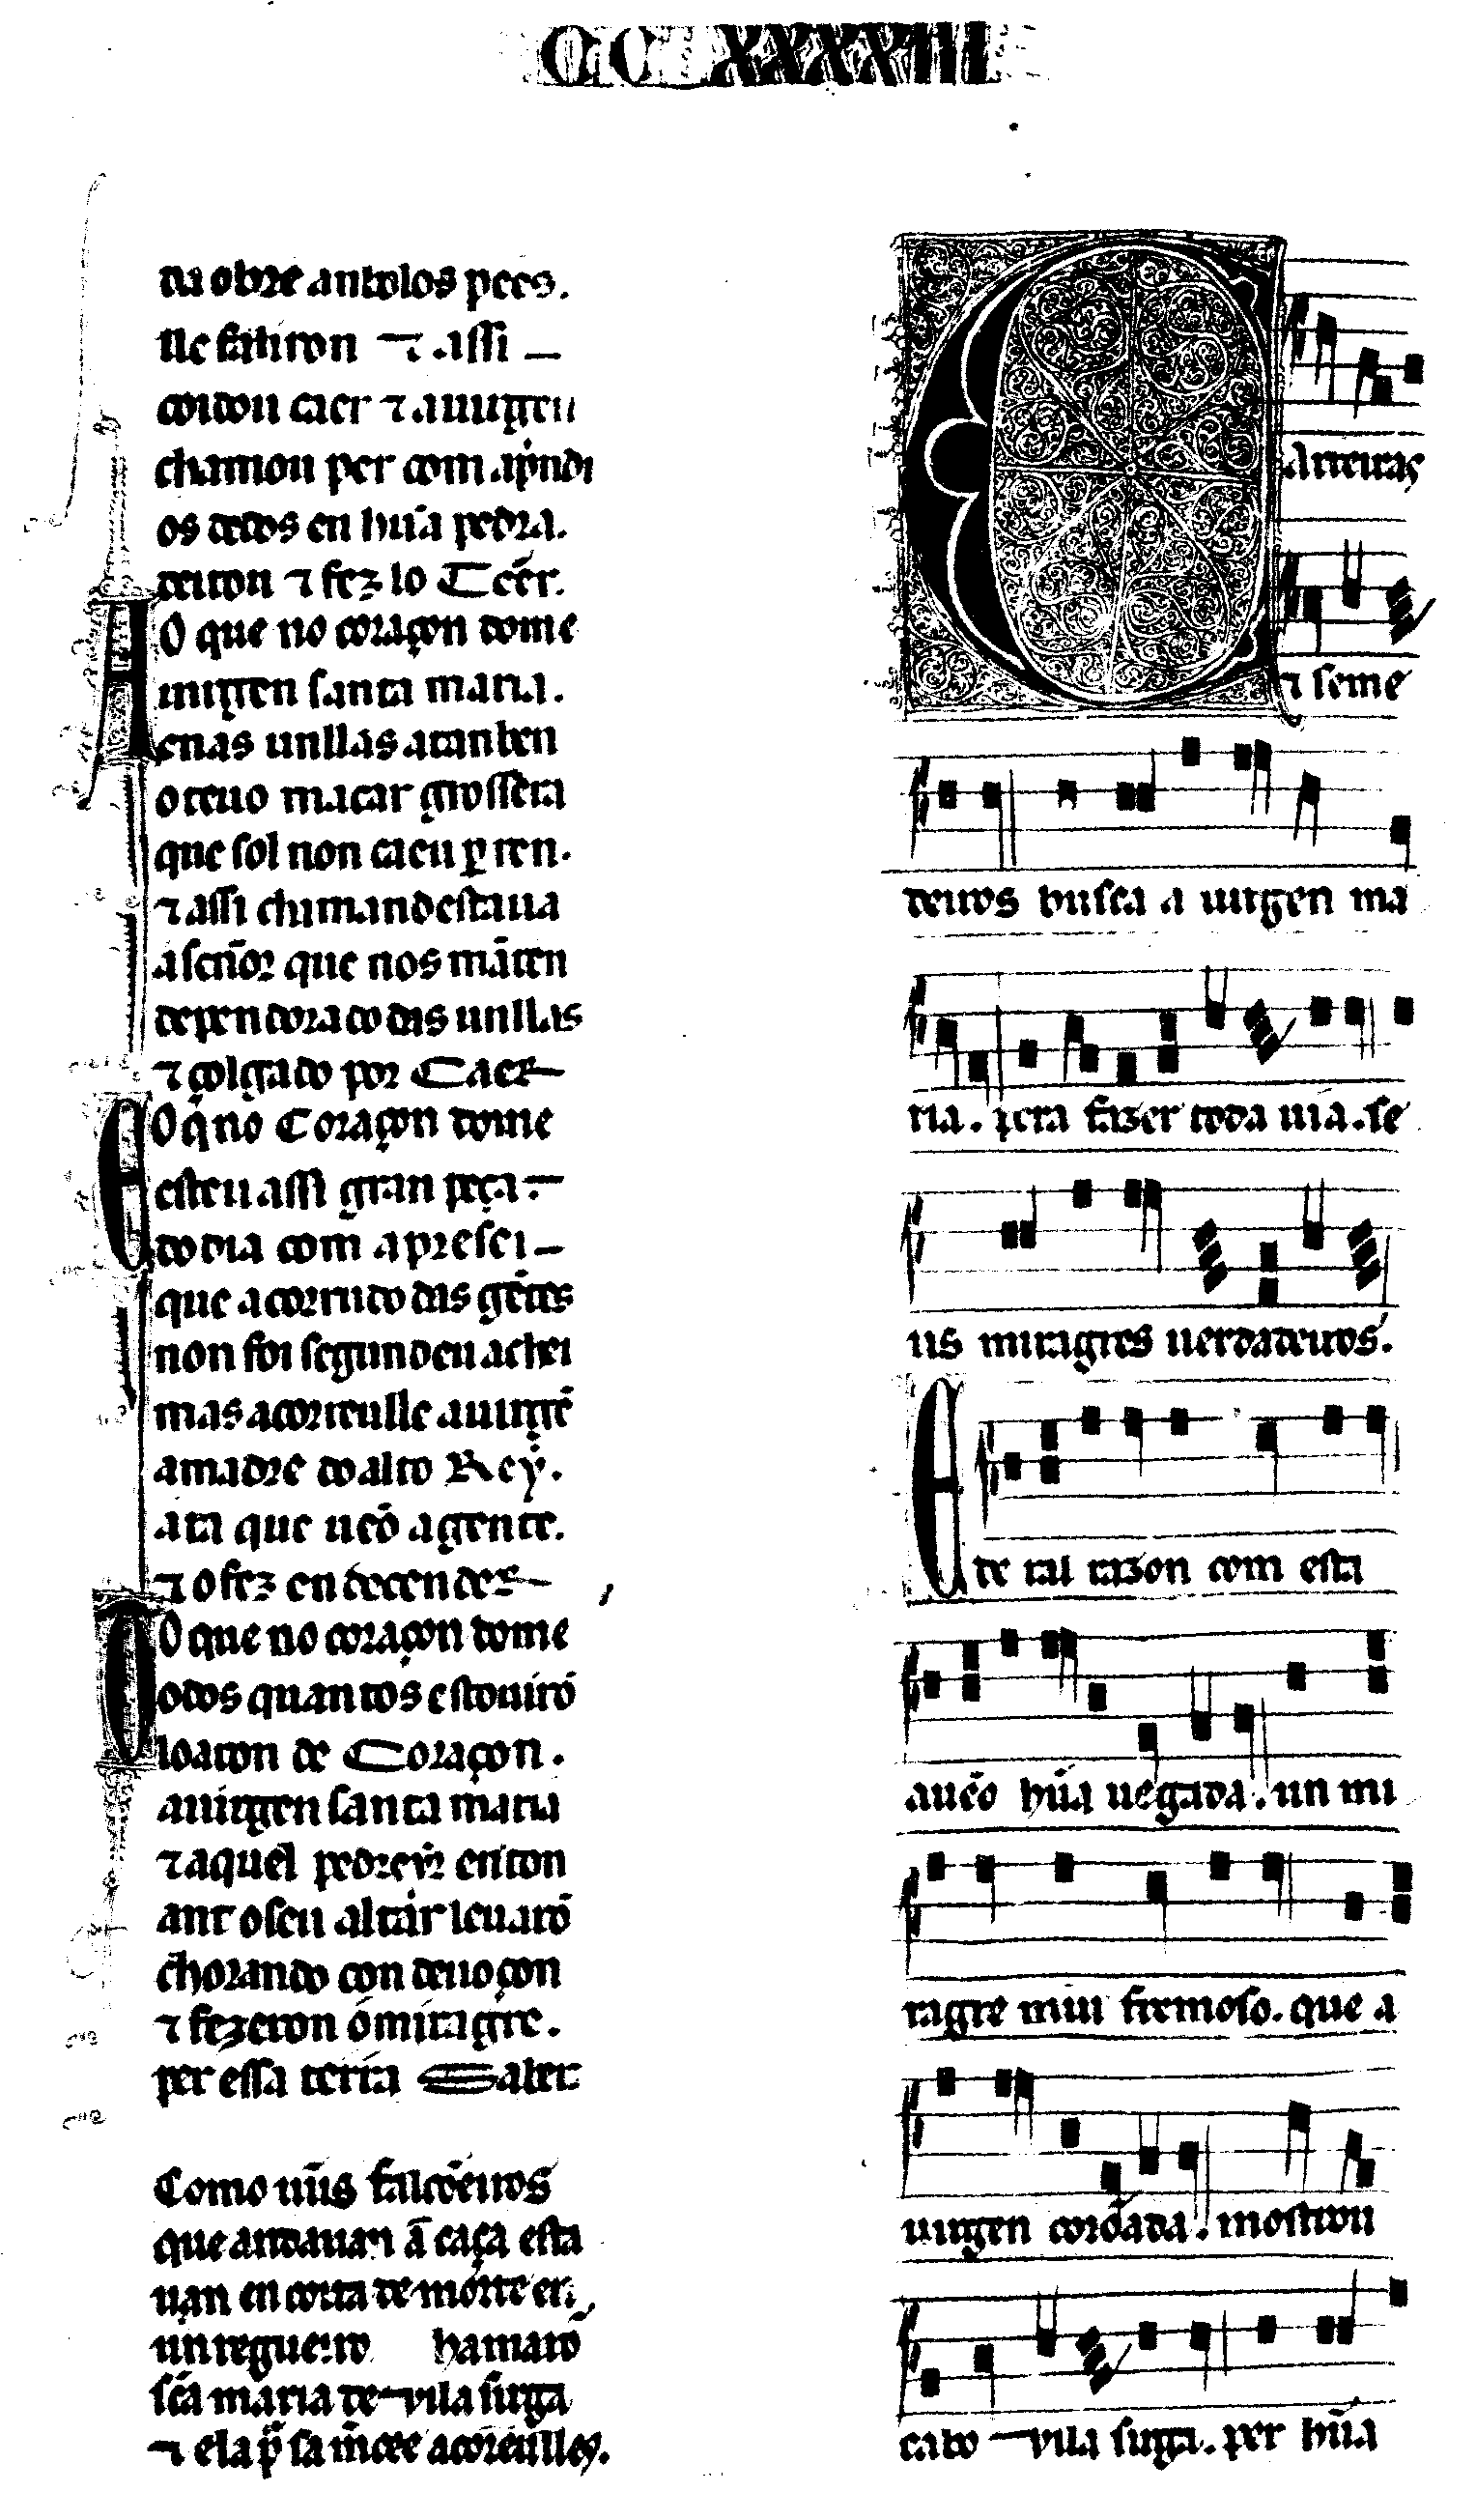 CCXXXXIII
da obre ant olos pees.
lle faliron ⁊ assi
ouuou caer ⁊ a uirgen
chamou per com aprendi
os dedos en hũa pedra.
teuron ⁊ fez lo Tẽer.
O que no coraçon dome
uirgen santa maria.
enas unllas atan ben
o teuo macar grossera
que sol non caeu per ren.
⁊ assi chamand estaua
a sennor que nos mãten
dependorado das unllas
⁊ colgado por Caer
O q̇ no Coraçon dome
esteu assi gran peça
do dia com apres ei
que a corrudo das gẽtes
non foi segund eu achei
mas acorreulle a uirgẽ
a madre do alto Rey.
ata que uẽo a gente.
⁊ o fez en decender
O que no coraçon dome
odos quantos estouirõ
loaron de Coraçon.
a uirgen santa maria
⁊ aquel pedreyr enton
ant o seu altar leuarõ
chorando con deuoçon
⁊ fezeron o miragre.
per essa terra Saber
Como uũs falcõeiros
que andauan a caça esta
uan en coita de morte en
un regueiro hamarõ
scã maria de uila sirga
⁊ ela p̃ sa m̃cee acorreulles.
Carreiras
⁊ seme
deiros busca a uirgen ma
ria. pera fazer toda uia. se
us miragres uerdadeiros.
E de tal razon com esta
auẽo hũa uegada. un mi
ragre mui fremoso. que a
uirgen cordãda. mostrou
cabo uila sirga. per hũa